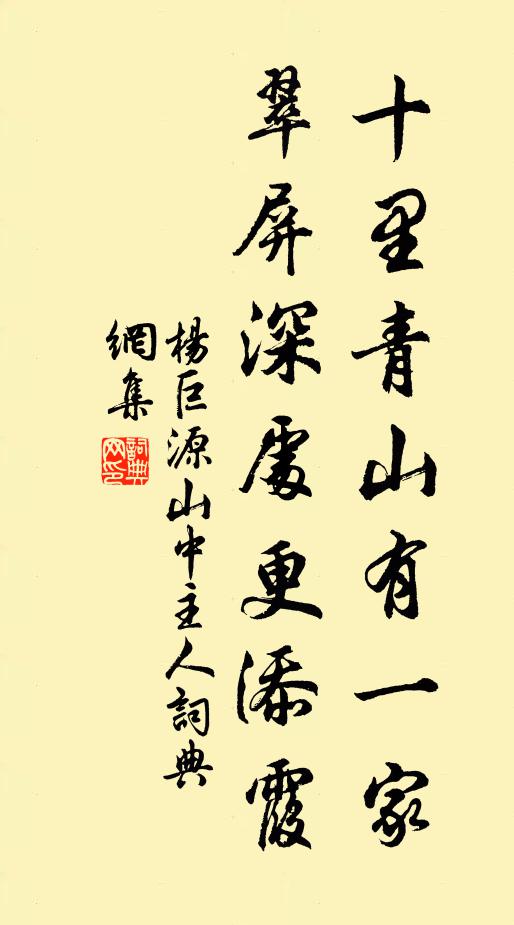 十里青山有一家
翠屏深處更添霞
楊巨源山中主人詞典
網集
詞典網印